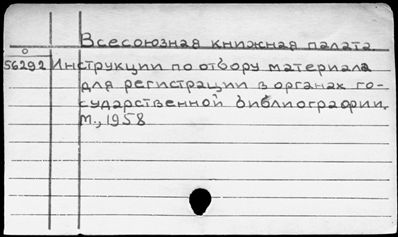 Всесоюзная книжная палата.
56292 Инструкции по отбору материала
для регистрации в органах го-
сударственной библиографии.
М., 1958